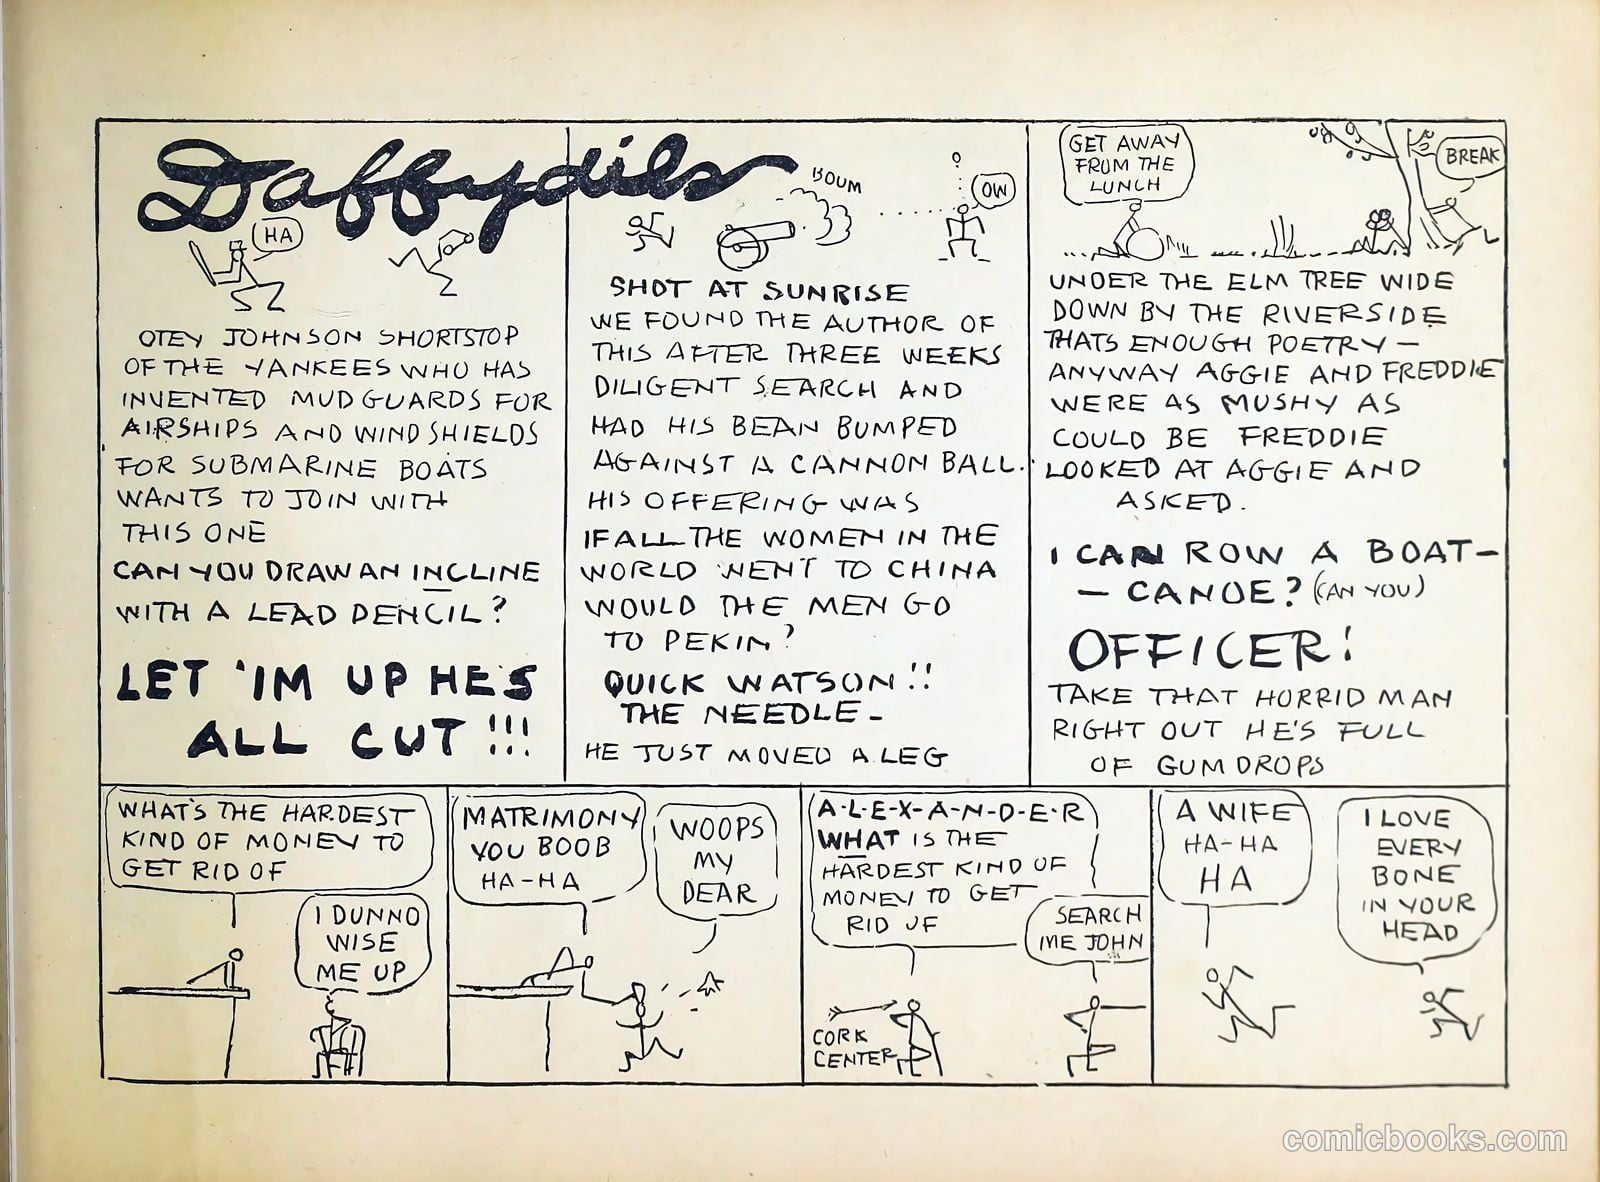 Daffydils
HA
OTEY JOHNSON SHORTSTOP
OF THE YANKEES WHO HAS
INVENTED MUDGUARDS FOR
AIRSHIPS AND WINDSHIELDS
FOR SUBMARINE BOATS
WANTS TO JOIN WITH
THIS ONE
CAN YOU DRAW AN INCLINE
WITH A LEAD PENCIL?
LET 'IM UP HE'S
ALL CUT!!!
BOUM
OW
SHOT AT SUNRISE
WE FOUND THE AUTHOR OF
THIS AFTER THREE WEEKS
DILIGENT SEARCH AND
HAD HIS BEAN BUMPED
AGAINST A CANNON BALL.
HIS OFFERING WAS
IF ALL THE WOMEN IN THE
WORLD WENT TO CHINA
WOULD THE MEN GO
TO PEKIN?
QUICK WATSON!!
THE NEEDLE-
HE JUST MOVED A LEG
GET AWAY
FROM THE
LUNCH
BREAK
UNDER THE ELM TREE WIDE
DOWN BY THE RIVERSIDE
THATS ENOUGH POETRY -
ANYWAY AGGIE AND FREDDIE
WERE AS MUSHY AS
COULD BE FREDDIE
LOOKED AT AGGIE AND
ASKED.
I CAN ROW A BOAT-
- CANOE? (CAN YOU)
OFFICER!
TAKE THAT HORRID MAN
RIGHT OUT HE'S FULL
OF GUM DROPS
WHAT'S THE HARDEST
KIND OF MONEY TO
GET RID OF
I DUNNO
WISE
ME UP
MATRIMONY
YOU BOOB
HA-HA
WOOPS
MY
DEAR
A-L-E-X-A-N-D-E-R
WHAT IS THE
HARDEST KIND OF
MONEY TO GET
RID OF
SEARCH
ME JOHN
CORK
CENTER
A WIFE
HA-HA
HA
I LOVE
EVERY
BONE
IN YOUR
HEAD
comicbooks.com